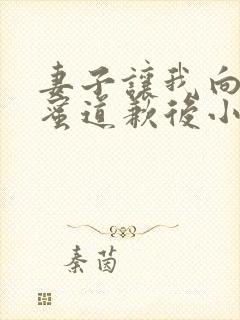 妻子讓我向
蜜道歉後小
秦茵